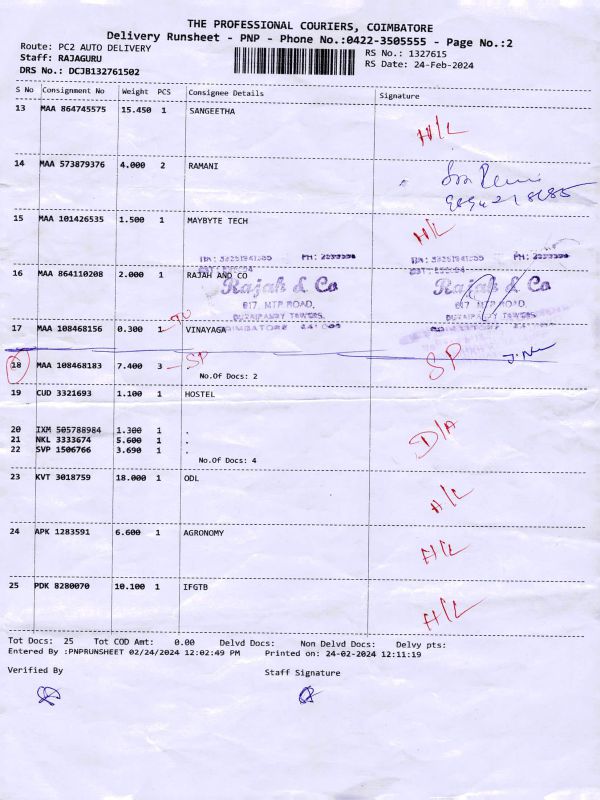 THE PROFESSIONAL COURIERS, COIMBATORE
Delivery Runsheet - PNP - Phone No.:0422-3505555 - Page No.:2
Route: PC2 AUTO DELIVERY
RS No.: 1327615
Staff: RAJAGURU
RS Date: 24-Feb-2024
DRS No.: DCJB132761502
S No Consignment No Weight PCS Consignee Details Signature
13 MAA 864745575 15.450 1 SANGEETHA H/L
14 MAA 573879376 4.000 2 RAMANI
15 MAA 101426535 1.500 1 MAYBYTE TECH H/L
16 MAA 864110208 2.000 1 RAJAH AND CO
Rajah & Co Rajah & Co
617, MTP ROAD, 617, MTP ROAD,
17 MAA 108468156 0.300 1 VINAYAGA
18 MAA 108468183 7.400 3 SP . SP
No.Of Docs: 2
19 CUD 3321693 1.100 1 HOSTEL
20 IXM 505788984 1.300 1 . D/A
21 NKL 3333674 5.600 1 .
22 SVP 1506766 3.690 1 .
No.Of Docs: 4
23 KVT 3018759 18.000 1 ODL H/L
24 APK 1283591 6.600 1 AGRONOMY H/L
25 PDK 8280070 10.100 1 IFGTB H/L
Tot Docs: 25 Tot COD Amt: 0.00 Delvd Docs: Non Delvd Docs: Delvy pts:
Entered By :PNPRUNSHEET 02/24/2024 12:02:49 PM Printed on: 24-02-2024 12:11:19
Verified By Staff Signature